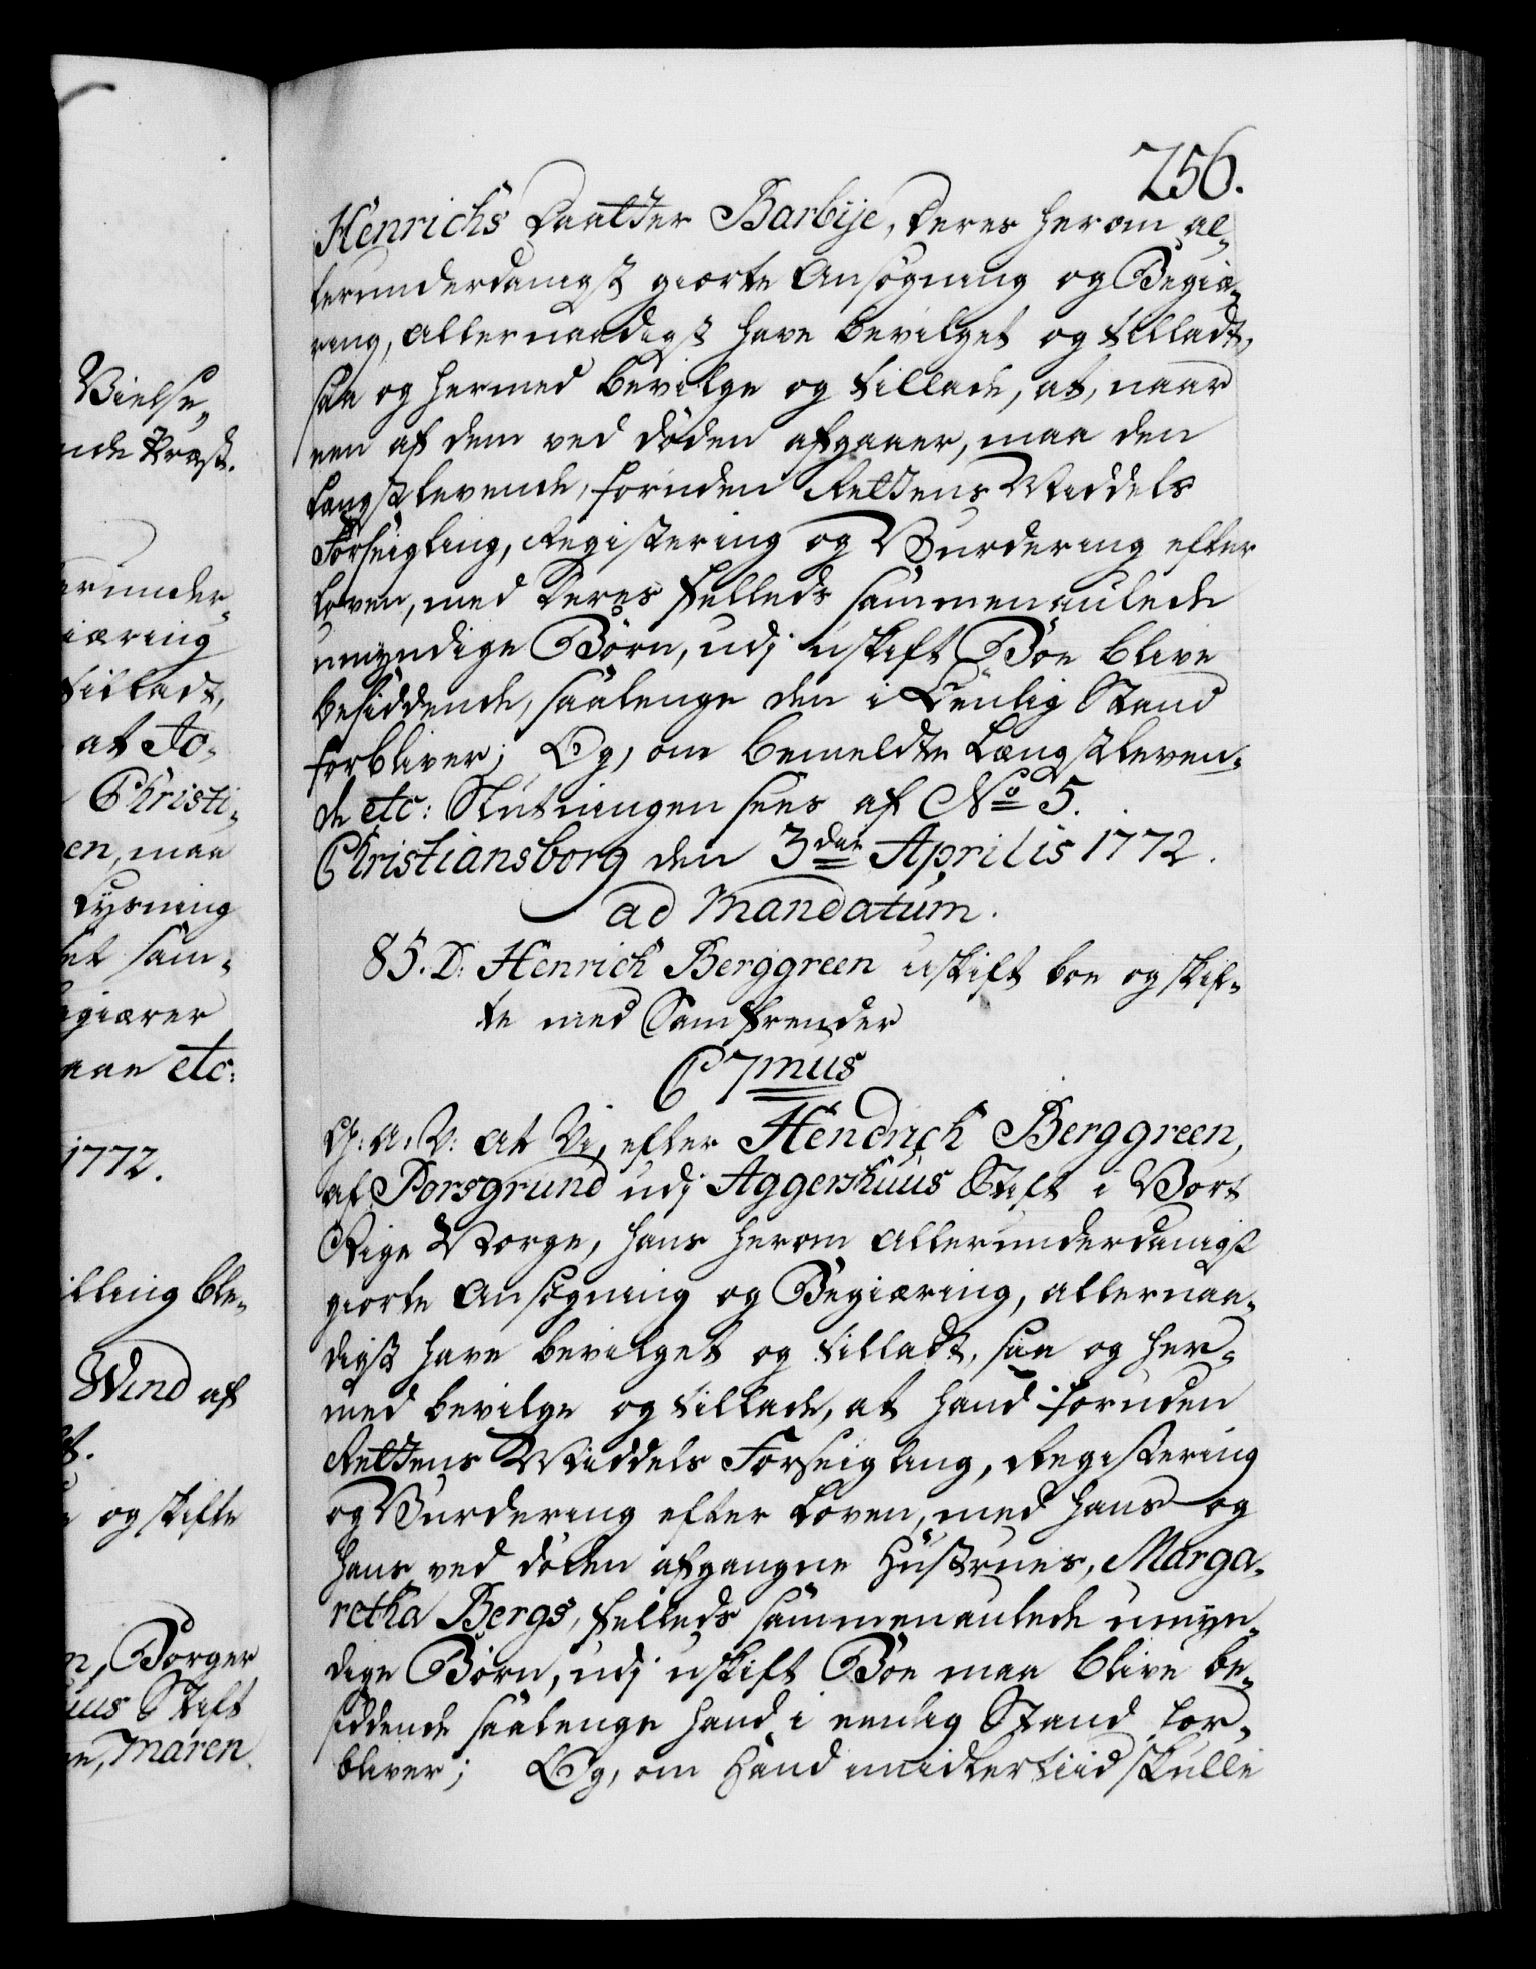 256.
Henrichs Daatter Barbije, deres herom al-
lerunderdanigst giorte Ansøgning og Begiæ-
ring, allernaadigst have bevilget og tilladt,
saa og hermed bevilge og tillade, at, naar
een af dem ved døden afgaaer, maa den
længstlevende, foruden Rettens Middels
Forseigling, Registering og Vurdering efter
Loven, med deres fælleds sammenaulede
umyndige Børn, udj uskift Boe blive
besiddende, saalenge den i Eenlig Stand
forbliver; Og, om bemeldte Længstleven-
de etc: Slutningen sees af No 5.
Christiansborg den 3den Aprilis 1772.
ad Mandatum.
85. D: Henrich Berggreen uskift boe og skif-
te med Samfrender
C 7mus
G: A: V: at Vi, efter Hendrich Berggreen,
af Porsgrund udj Aggershuus Stift i Vort
Rige Norge, hans herom allerunderdanigst
giorte Ansøgning og Begiæring, allernaa-
digst have bevilget og tilladt, saa og her-
med bevilge og tillade, at hand foruden
Rettens Middels Forseigling, Registering
og Vurdering efter Loven, med hans og
hans ved døden afgangne Hustrues, Marga-
retha Bergs, fælleds sammenaulede umyn-
dige Børn, udj uskift Boe maa blive be-
siddende saalenge hand i eenlig Stand for-
bliver; Og, om Hand imidlertiid skulle
Vielse,
nde Præst.
erunder-
iæring
tilladt,
at Jo-
Christi-
en, maa
Lysning
et sam-
egiærer
aan etc:
1772.
illing ble-
Wind af
og skifte
n, Borger
uus Stift
ne, Maren